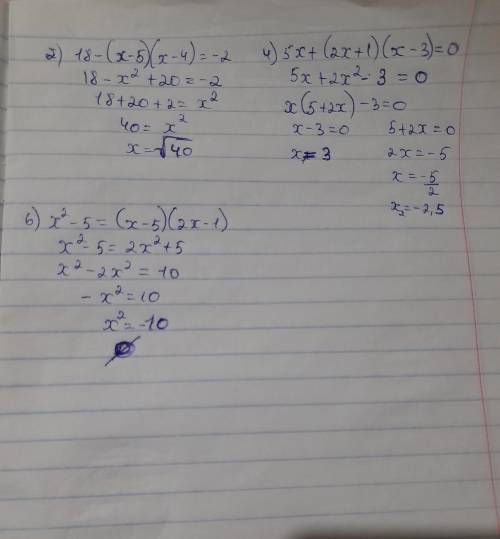 2) 18-(x-5)(x-4)=-2
18-x²+20=-2
18+20+2=x²
40=x²
x=√40
4) 5x+(2x+1)(x-3)=0
5x+2x²-3=0
x(5+2x)-3=0
x-3=0 5+2x=0
x=3 2x=-5
x=-5/2
x₂=-2,5
6) x²-5=(x-5)(2x-1)
x²-5=2x²+5
x²-2x²=10
-x²=10
x²=-10
Ø